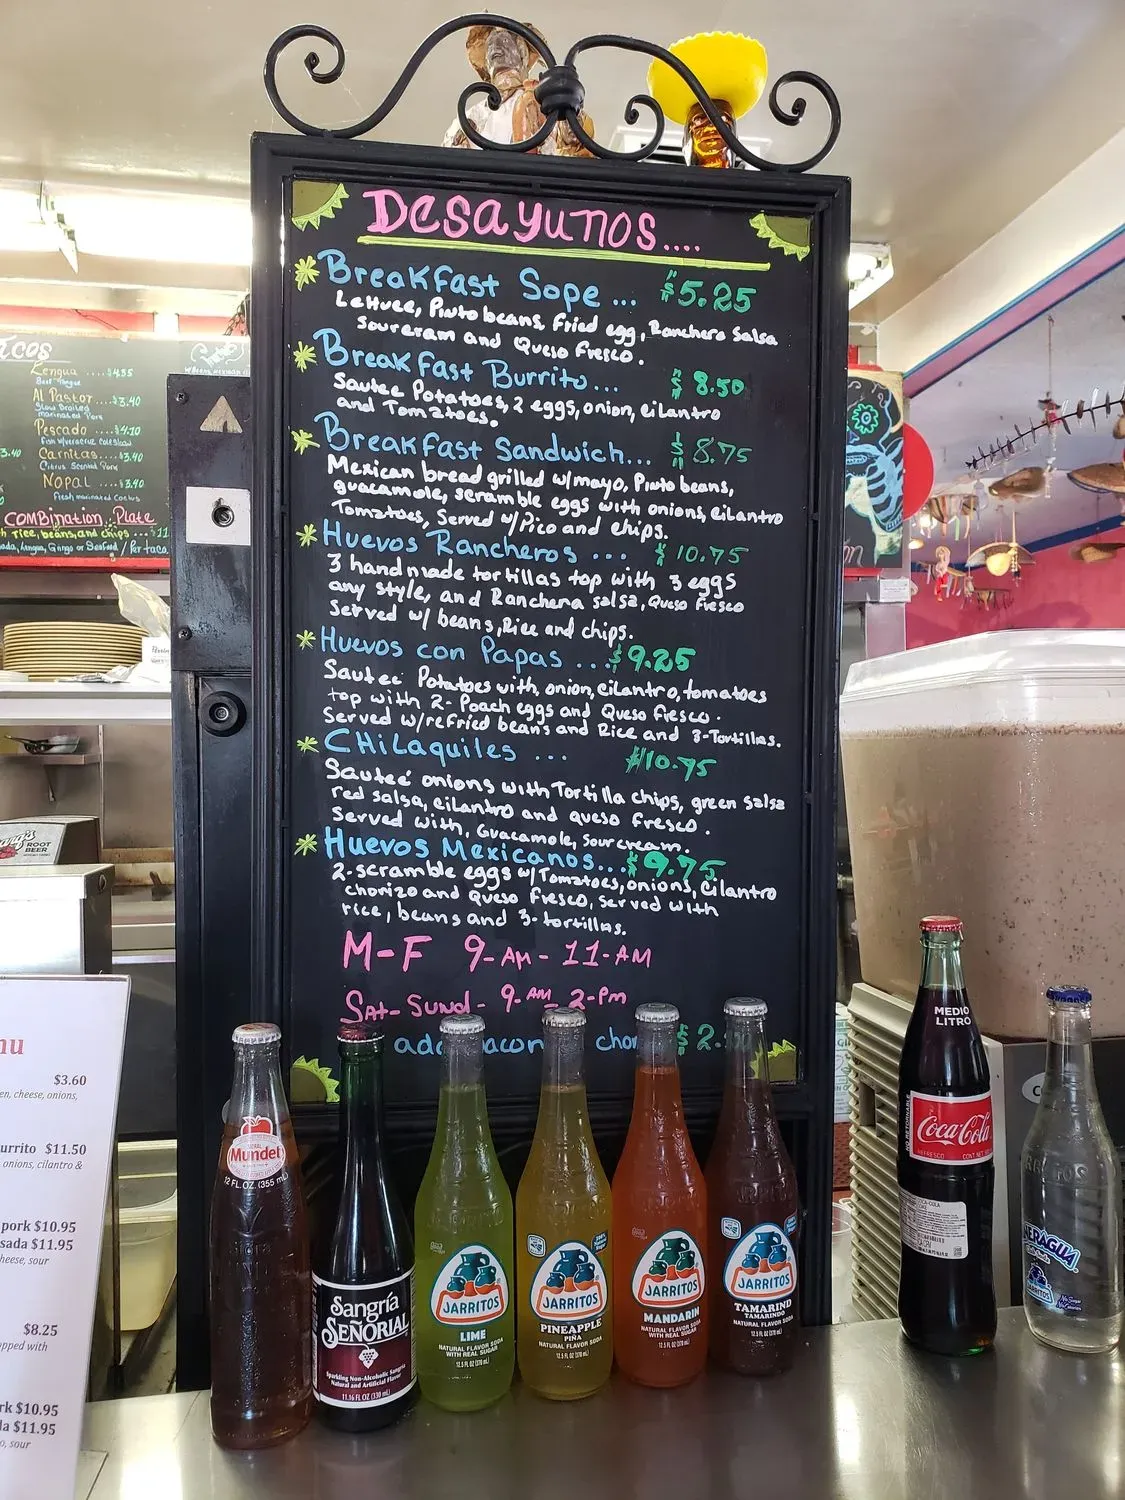 Desayunos....
Breakfast Sope ... $5.25
Lettuce, Pinto beans, Fried egg, Ranchero Salsa
Sourcream and Queso Fresco.
Breakfast Burrito... $8.50
Sautee Potatoes, 2 eggs, onion, cilantro
and Tomatoes.
Breakfast Sandwich... $8.75
Mexican bread grilled w/mayo, Pinto beans,
guacamole, scramble eggs with onions, cilantro
Tomatoes, Served w/Pico and chips.
Huevos Rancheros ... $10.75
3 handmade tortillas top with 3 eggs
any style, and Ranchera salsa, Queso Fresco
Served w/ beans, Rice and chips.
Huevos con Papas ... $9.25
Sauteé Potatoes with, onion, cilantro, tomatoes
top with 2- Poach eggs and Queso Fresco.
Served w/refried beans and Rice and 3-Tortillas.
CHiLaquiles ... $10.95
Sauteé onions with Tortilla chips, green salsa
red salsa, cilantro and queso fresco.
Served with, Guacamole, sour cream.
Huevos Mexicanos... $9.75
2-scramble eggs w/Tomatoes, onions, cilantro
chorizo and Queso Fresco, served with
rice, beans and 3-tortillas.
M-F 9-AM - 11-AM
SAt- Sund- 9-AM - 2-Pm
add bacon chor $2.
Lengua ....$4.55
Beef Tongue
Al Pastor ....$3.40
Slow Broiled
marinated Pork
Pescado ....$4.10
Fish w/veracruz coleslaw
Carnitas...$3.40
Citrus Scented Pork
Nopal ..$3.40
Fresh marinated Cactus
Combination Plate
rice, beans, and chips
ROOT
BEER
$3.60
cheese, onions,
$11.50
onions, cilantro &
pork $10.95
$11.95
sour
$8.25
with
$10.95
$11.95
sour
Mundet
12 FL.OZ. (355 mL)
Sangría
SEÑORIAL
Sparkling Non-Alcoholic Sangria
Natural and Artificial Flavor
11.16 FL OZ (330 mL)
JARRITOS
LIME
NATURAL FLAVOR SODA
WITH REAL SUGAR
12.5 fl oz (370 mL)
JARRITOS
PINEAPPLE
PIÑA
NATURAL FLAVOR SODA
12.5 fl oz (370 mL)
JARRITOS
MANDARIN
NATURAL FLAVOR SODA
WITH REAL SUGAR
12.5 fl oz (370 mL)
JARRITOS
TAMARIND
TAMARINDO
NATURAL FLAVOR SODA
12.5 fl oz (370 mL)
MEDIO
LITRO
NO RETORNABLE
Coca-Cola
REFRESCO
JARRITOS